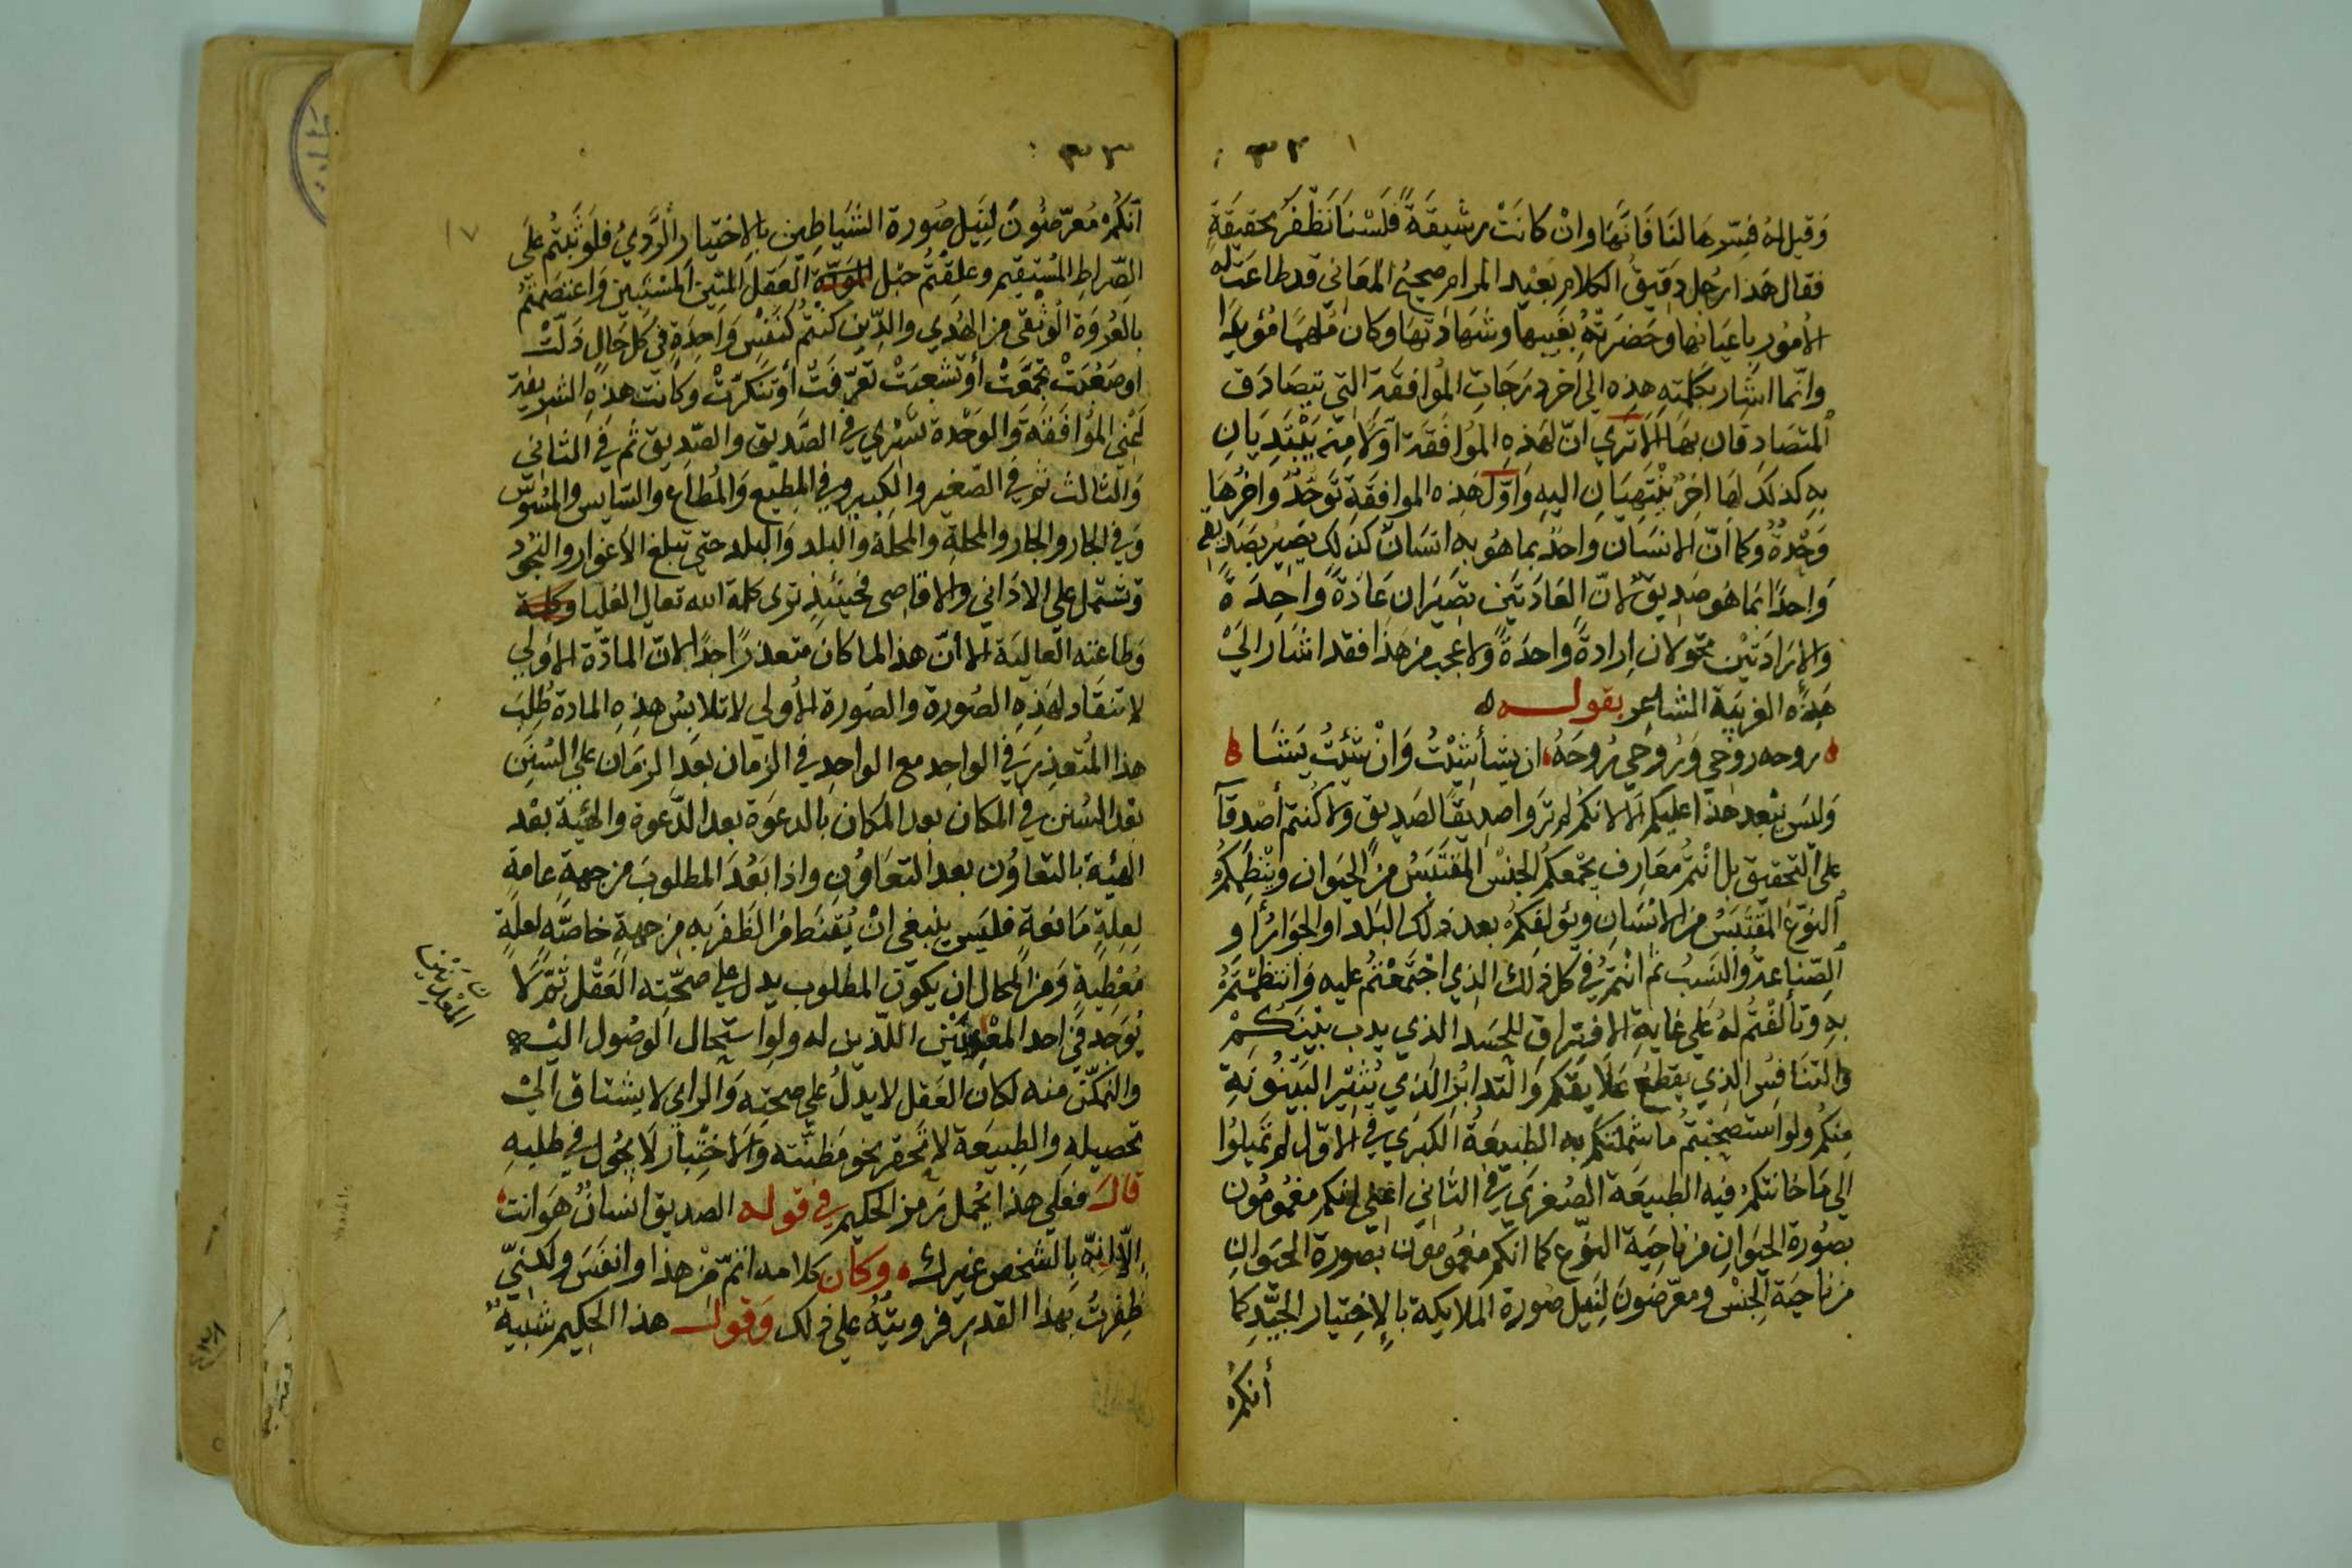 ٣٢
وَقيل له فسّرها لنا فَانّها وانْ كانَتْ رشيقَةً فلسْنا نَظفرُ بحقيقةٍ
فقال هَذا رجُل دقيقُ الكلامِ بعيْد المرام صحيحُ المعَاني قد طاعَتْ له
الامُور باعيَانها وحَضَرَتْهُ بغَيبها وشهادَتها وكان مُلهمًا مُؤيدًا
وانّما اشار بكلمته هذِه الي اخر درَجَاتِ المُوافقَة التي يتصَادَق
المتصَادقان بهَا الا تَري انّ لهَذه المُوافَقَة اوّلًا منه يَبْتَدِيَانِ
به كذلكَ لها اخِرٌ ينْتَهيَانِ اليهِ وَاوّل هَذه الموافقَةِ تَوَحُّدٌ واخرُهَا
وَحْدةٌ وكما انّ الانسَان واحدٌ بما هُو به انسَانٌ كذلك يَصِيْر بصَديقه
وَاحِدًا بما هُو صَديقٌ لانّ العَادَتَين تصِيَران عَادَةً وَاحِدَةً
والارادَتيْن تتحولان اِرادةً واحدَةً ولا عجب من هَذا فقد اشار الي
هَذه الغَريبَة الشاعر بقوله
روحه روحي وَرُوحي رُوحَهُ ان يشأ شئْتُ وَانْ شئتُ يَشَا
وَليسَ يبعد هذا عليكم الا لانكم لم تَروا صديقًا لصَديق ولا كُنتم أصْدقاَ
علي التحقيق بل انتُم مَعَارِف يجْمَعكمُ الجنسْ المقتَبَسُ من الحيَوان وينْظمكُم
النوعُ المقْتَبَسُ من الانسَانِ ويؤلفكُم بعد ذلك البَلد او الجوَارُ او
الصّناعةُ والنسَبُ ثم انتُم في كل ذلك الذي اجْتَمعْتُم عليه وَانتظمْتُم
به وتَألفْتُم لهُ علي غايةِ الافتراق للحسَد الذي يدب بَيْنَكُمْ
والتنَافس الذي يقطعُ علَايقَكم وَالتّدابُر الذي يُثيرُ البَيْنُونَةِ
مِنكُم ولو استصحَبْتُم ما شملتكم به الطبيعَةُ الكبرَي في الاوّل لم تَميلُوا
الي مَا خانتكم فيه الطبيعَة الصُغرَي في الثاني اعني انكم مغمُومُون
بصُورة الحيَوانِ من ناحيَة النوع كما انكم مغمُومون بصُورة الحَيَوانِ
من ناحيَة الجنْس ومعرّضونَ لنَيل صُورة الملايكة بالإختيار الجيّد كما
أنكم
٣٣
أنكم مُعرّضُونَ لنَيل صُورة الشَيَاطِين بالاختيارِ الرَّديُ فلَو ثبتُم عَلى
الصّراطِ المُستقيمِ وعلِقتُم حبْل العقل المتينِ المسْتبين وَاعتصَمْتُم
بالعُروَة الوُثقَى من الهُدي والدّين كنتُم كنَفسٍ وَاحِدَةٍ في كل حَالٍ ذلّتْ
أو صَعُبَتْ تجمَّعَتْ أو تَشعبَتْ تَعرّفَتْ أو تنكرّتْ وكانت هَذهِ الشريفة
أعْني المُوافَقَةَ وَالوَحْدة تسْري في الصَّديق والصّديق ثم في الثاني
وَالثالث ثم في الصّغير والكبيرِ وفي المطيعِ وَالمُطاعِ والسّايس والمسُوسِ
وَفي الجار والجار والمحلةِ والمحلة والبلد وَالبلد حتى تبلغ الاغوار والنجُود
وتشتمل علي الادَاني والاقَاصى فحينَئذٍ ترى كلمة الله تعالى العُليا
وَطاعته العاليَة الا أنّ هذا لما كان متعذرًا جدًا لانّ المادّة الاُولي
لا تنقَاد لهَذهِ الصُورة والصُورة الاُولي لا تلابسُ هذِهِ المادة طُلِبَ
هذا المُتعذر في الواحِد مع الواحِدِ في الزمان بعدَ الزمَانِ على السُنَنِ
بعد السُنن في المكان بعد المكان بالدعوَة بعد الدّعوة والهيئة بعْد
الهيئة بالتعاوُن بعد التعَاوُنِ واذا بَعُدَ المطلوبَ من جهةٍ عامةٍ
لعلةٍ مَانعةٍ فليسَ ينبغي انْ يُقنَط من الظفَر به من جهةٍ خاصّةٍ لعلةٍ
مُعْطيةٍ وَمن المحَال ان يكون المطلوب يدل علي صحّتهِ العَقْل ثُمّ لا
يُوجَد في احد المعْدنَيْن اللّذين له ولو استحال الوصُول اليه
والتمكّن منه لكان العَقل لا يدلُ علي صحتِه وَالراي لا يشتاق الي
تحصيلهِ والطبيعَة لا تتحرك نحو مَظنّته وَالاختِيار لَا يجُول في طلبهِ
قالَ فعَلي هَذا يُحمل رَمز الحكيم في قوله الصديق انسَانٌ هُوَ انت
إلّا انّه بالشخصِ غيرك وكان كلامه اتمّ من هَذا وانفَس ولكنني
ظفرتُ بهَذا القدر فرويتُهُ علي ذلك وَقول هذا الحكيم شبيهٌ